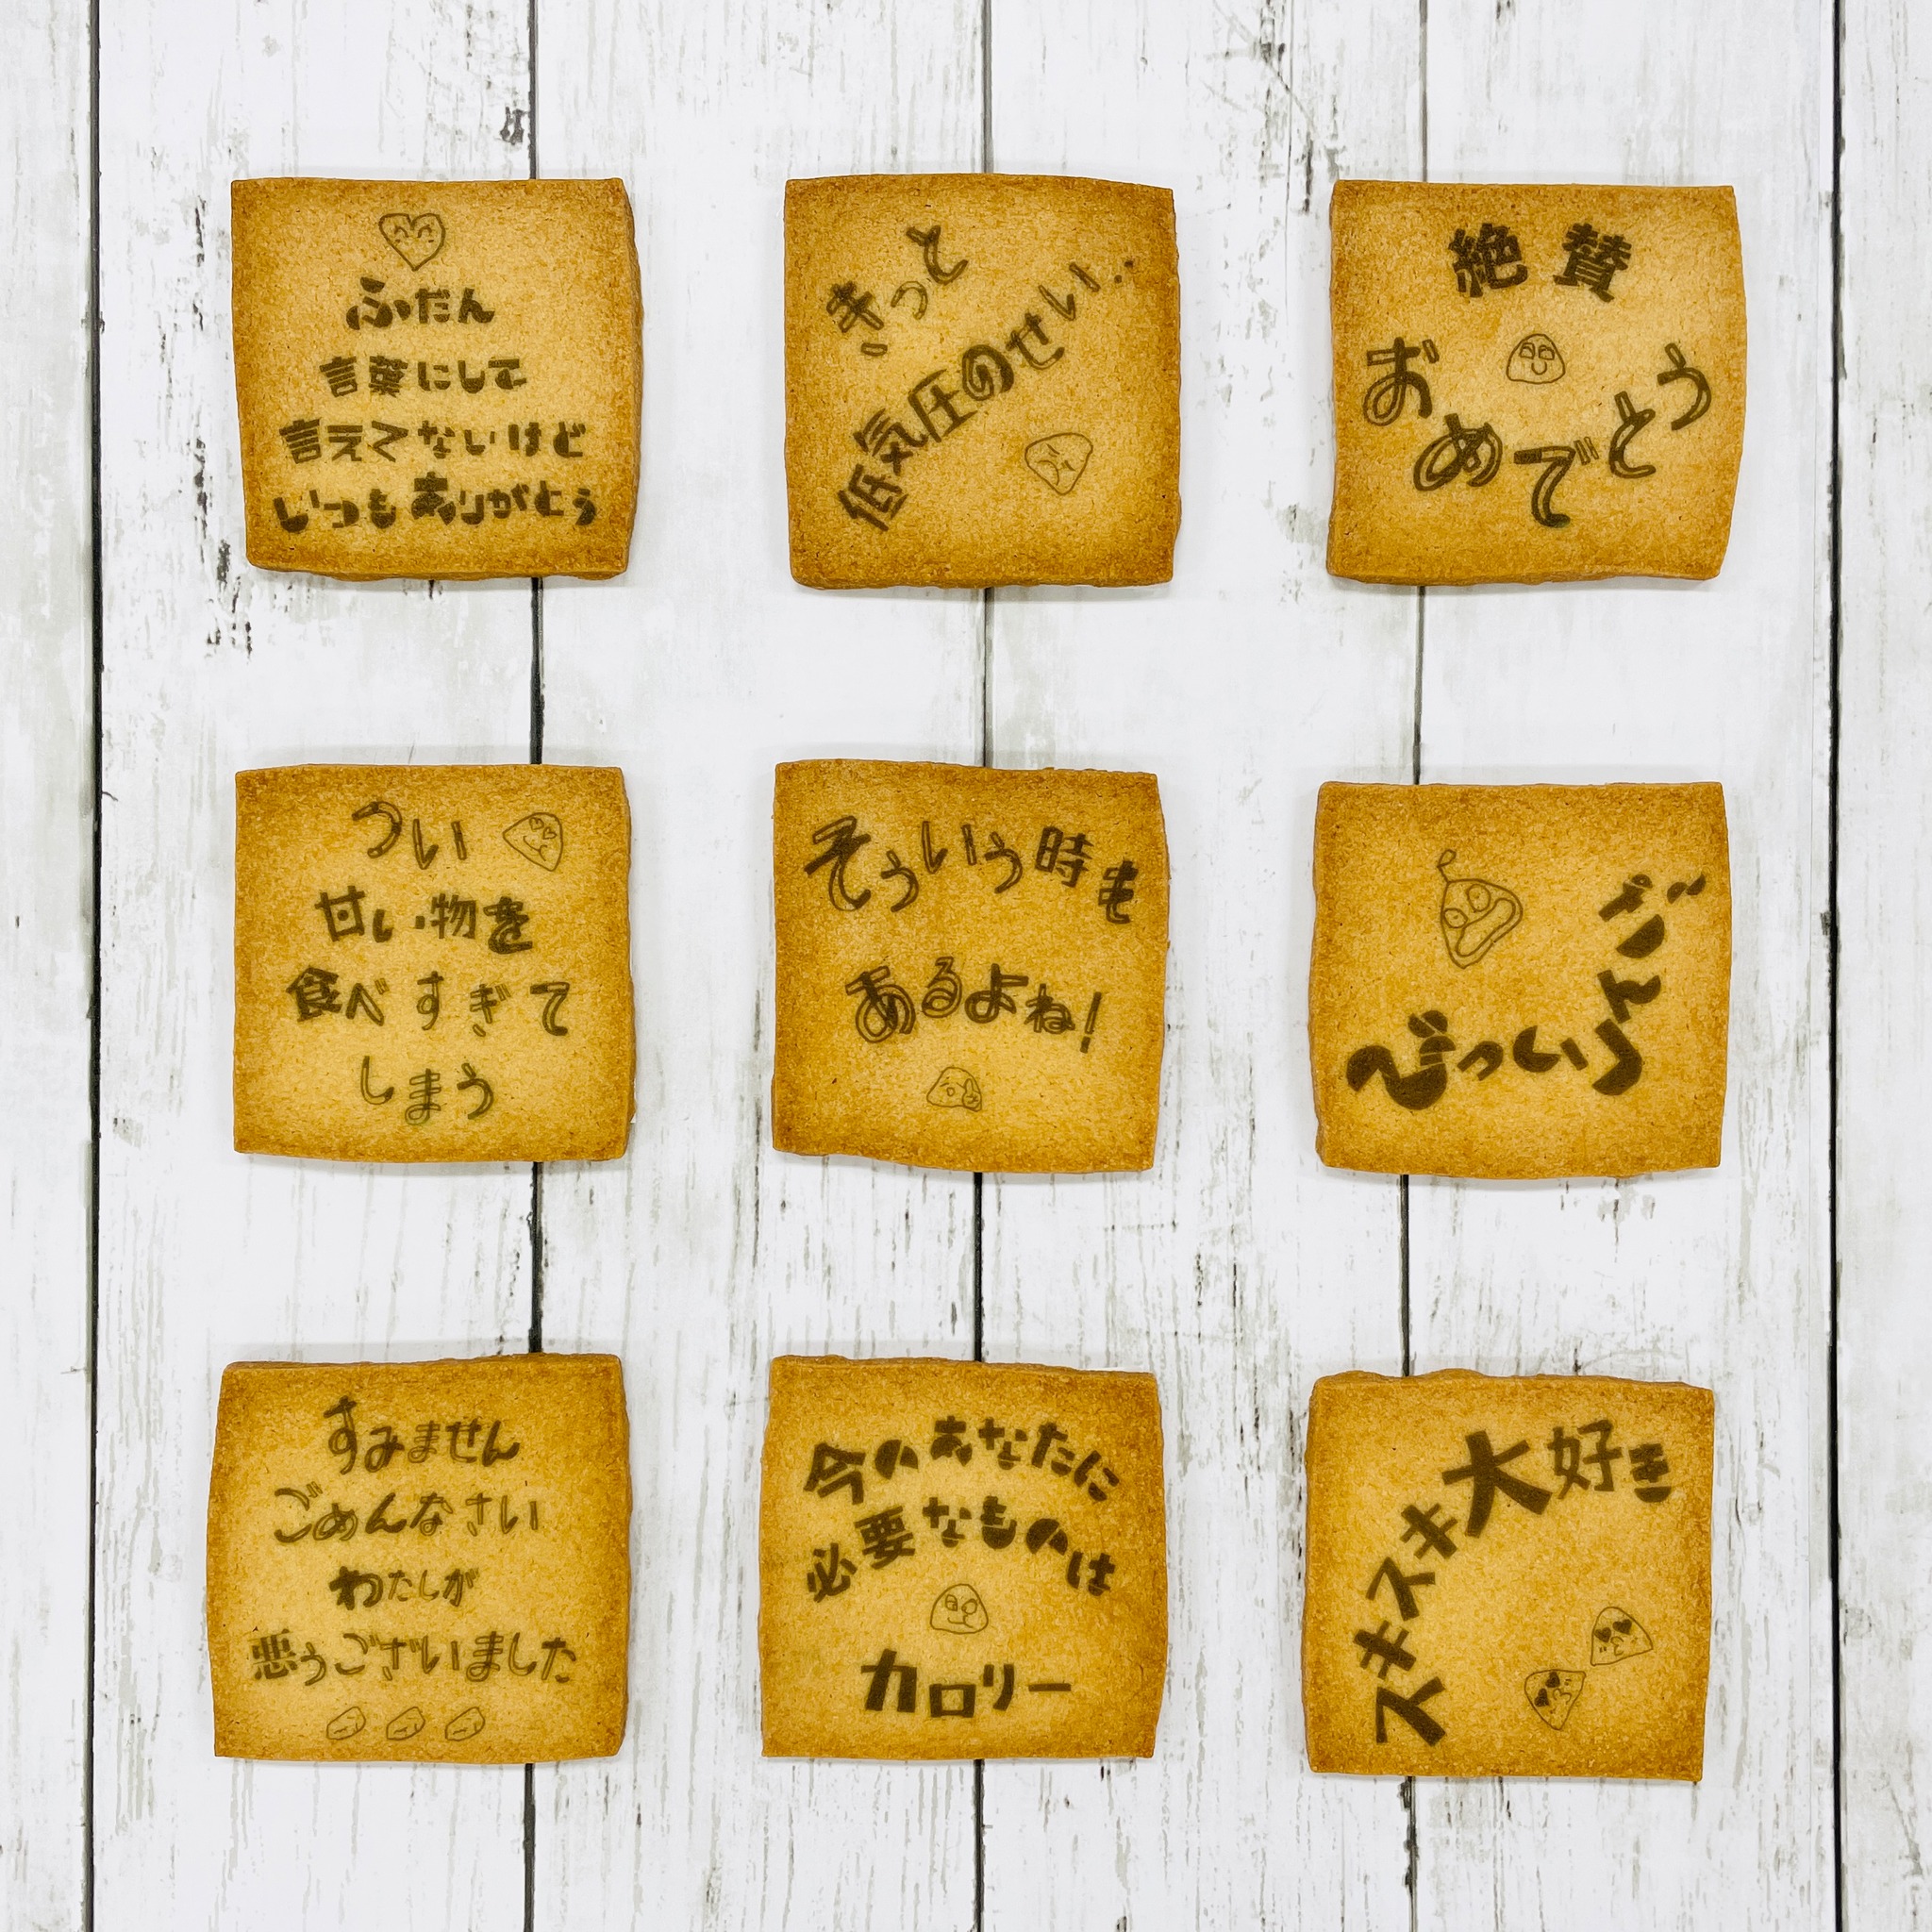 ふだん
言葉にして
言えてないけど
いつもありがとう
きっと
低気圧のせい..
絶賛
おめでとう
つい
甘い物を
食べすぎて
しまう
そういう時も
あるよね!
すみません
ごめんなさい
わたしが
悪うございました
今のあなたに
必要なものは
カロリー
スキスキスキ大好き